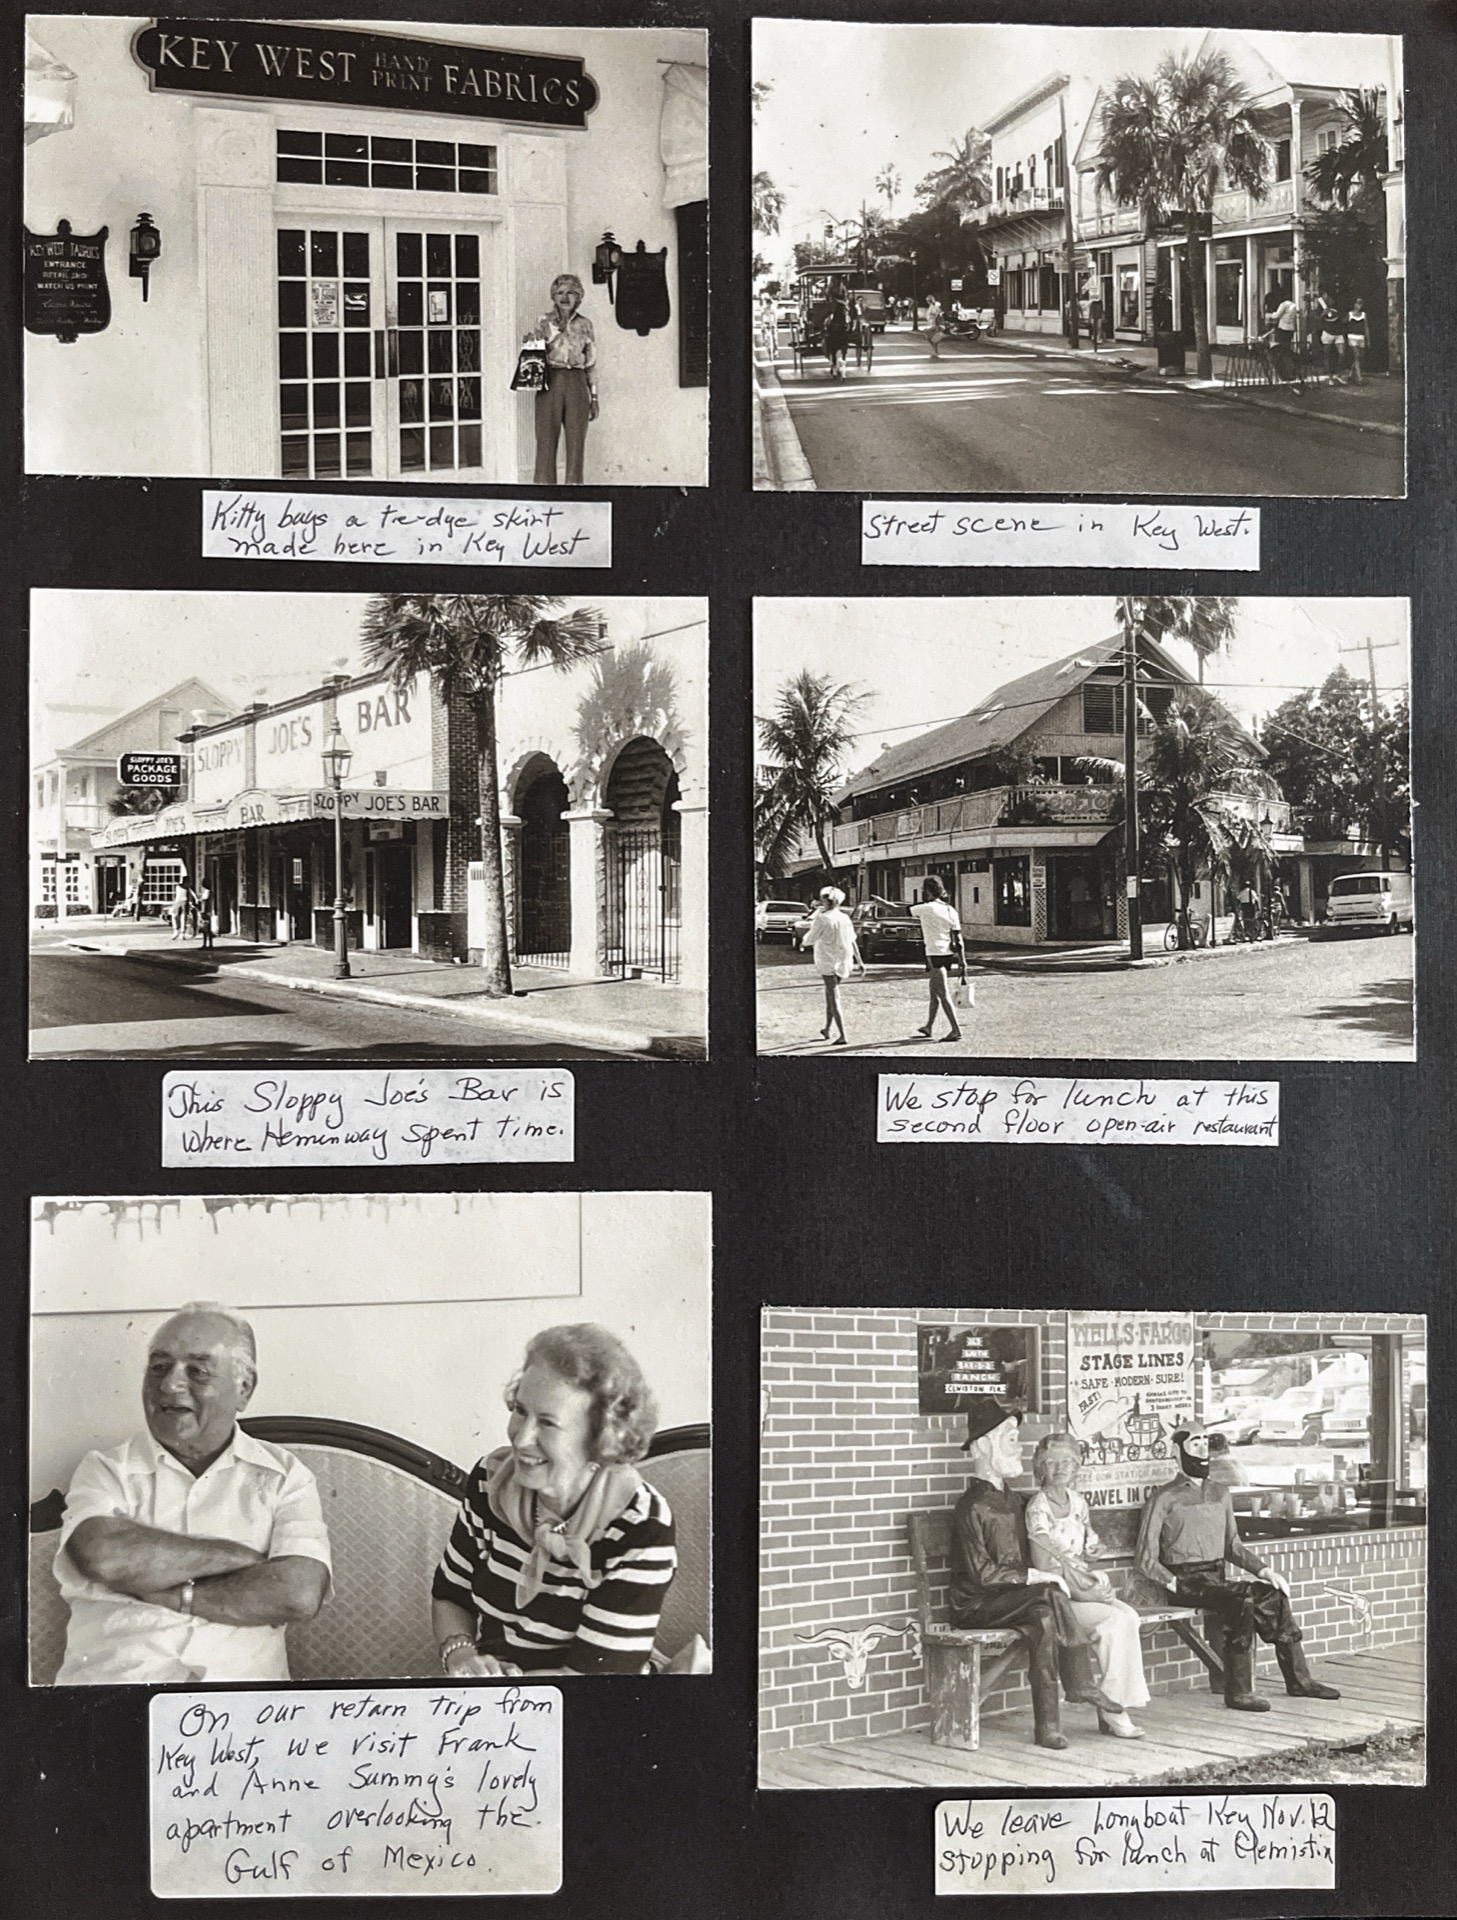 KEY WEST HAND PRINT FABRICS
KEY WEST FABRICS
ENTRANCE
RETAIL AND
WATCH US PRINT
Kitty buys a tie-dye skirt
made here in Key West
Street scene in Key West.
SLOPPY JOE'S BAR
SLOPPY JOE'S
PACKAGE
GOODS
SLOPPY JOE'S BAR
SLOPPY JOE'S BAR
This Sloppy Joe's Bar is
where Heminway spent time.
We stop for lunch at this
second floor open-air restaurant
On our return trip from
Key West, we visit Frank
and Anne Summy's lovely
apartment overlooking the
Gulf of Mexico.
OLD
SOUTH
BAR-B-Q
RANCH
CLEWISTON FLA.
WELLS-FARGO
STAGE LINES
SAFE-MODERN-SURE!
FAST!
KANSAS CITY TO
3 SHORT WEEKS
SEE OUR STATION AGENT
TRAVEL IN CO
We leave Longboat Key Nov. 12
stopping for lunch at Clemistin